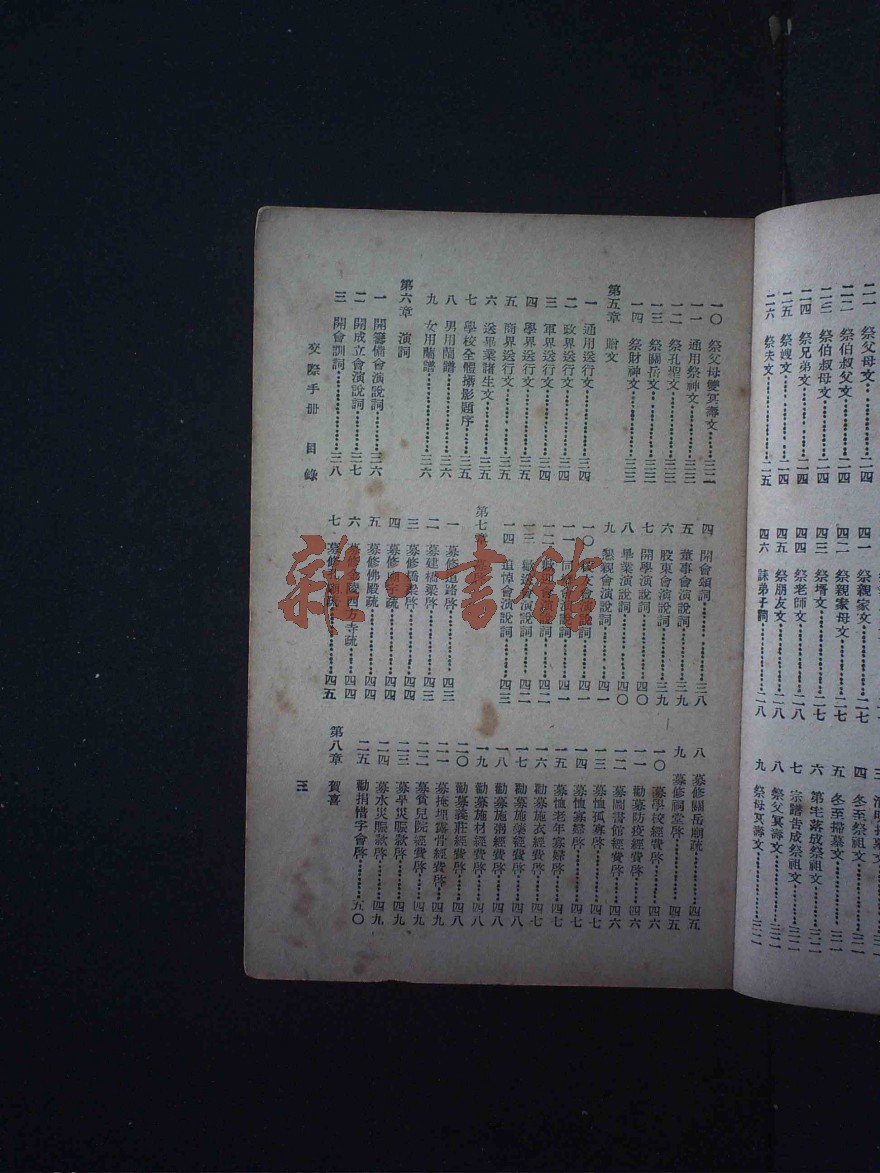 二一 祭父母文………二四
二二 祭伯叔父文………二四
二三 祭伯叔母文………二四
二四 祭兄弟文………二四
二五 祭嫂文………二四
二六 祭夫文………二五
祭親家文………二七
四二 祭親家母文………二七
四三 祭壻文………二七
四四 祭老師文………二八
四五 祭朋友文………二八
四六 誄弟子詞………二八
三 清明掃墓文………三一
四 冬至祭祖文………三一
五 冬至掃墓文………三一
六 第宅落成祭祖文………三二
七 宗譜告成祭祖文………三二
八 祭父冥壽文………三二
九 祭母冥壽文………三二
一〇 祭父母雙冥壽文………三二
一一 通用祭神文………三三
一二 祭孔聖文………三三
一三 祭關岳文………三三
一四 祭財神文………三三
第五章 贈文
一 通用送行文………三四
二 政界送行文………三四
三 軍界送行文………三四
四 學界送行文………三五
五 商界送行文………三五
六 送畢業諸生文………三五
七 學校全體攝影題序………三五
八 男用蘭譜………三六
九 女用蘭譜………三六
第六章 演詞
一 開籌備會演說詞………三六
二 開成立會演說詞………三七
三 開會訓詞………三八
四 開會頌詞………三八
五 董事會演說詞………三九
六 股東會演說詞………三九
七 開學演說詞………四〇
八 畢業演說詞………四〇
九 懇親會演說詞………四一
一〇 校友會演說詞………四一
一一 同鄉會演說詞………四一
一二 歡迎會演說詞………四二
一三 歡送會演說詞………四二
一四 追悼會演說詞………四三
第七章
一 募修道路啓………四三
二 募建橋梁啓………四三
三 募修橋梁啓………四四
四 募修廟宇疏………四四
五 募修佛殿疏………四四
六 募修金陵西方寺疏………四四
七 募修孔廟疏………四五
八 募修關岳廟疏………四五
九 募修祠堂啓………四五
一〇 募學校經費啓………四六
一一 勸募防疫經費啓………四六
一二 募圖書館經費啓………四六
一三 募恤孤寡啓………四七
一四 募恤寡婦啓………四七
一五 募恤老年寡婦啓………四七
一六 勸募施衣經費啓………四七
一七 勸募施藥經費啓………四八
一八 勸募施粥經費啓………四八
一九 勸募施材經費啓………四八
二〇 勸募義莊經費啓………四八
二一 募掩埋露骨經費啓………四九
二二 募貧兒院經費啓………四九
二三 募旱災賑款啓………四九
二四 募水災賑款啓………四九
二五 勸捐惜字會啓………五〇
第八章 賀喜
交際手冊 目錄
三
雜·書館